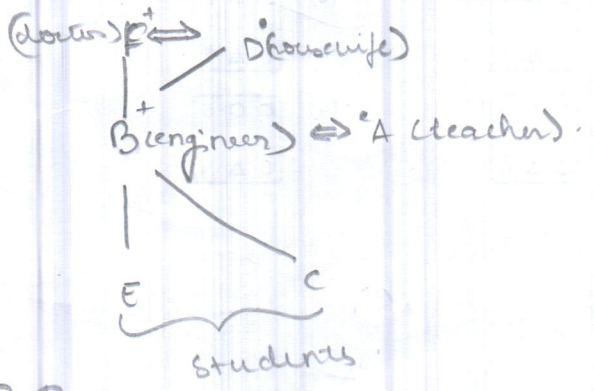 (doctor) F+ ⇔ D•(housewife)
B+(engineer) ⇔ •A (teacher).
E C
students